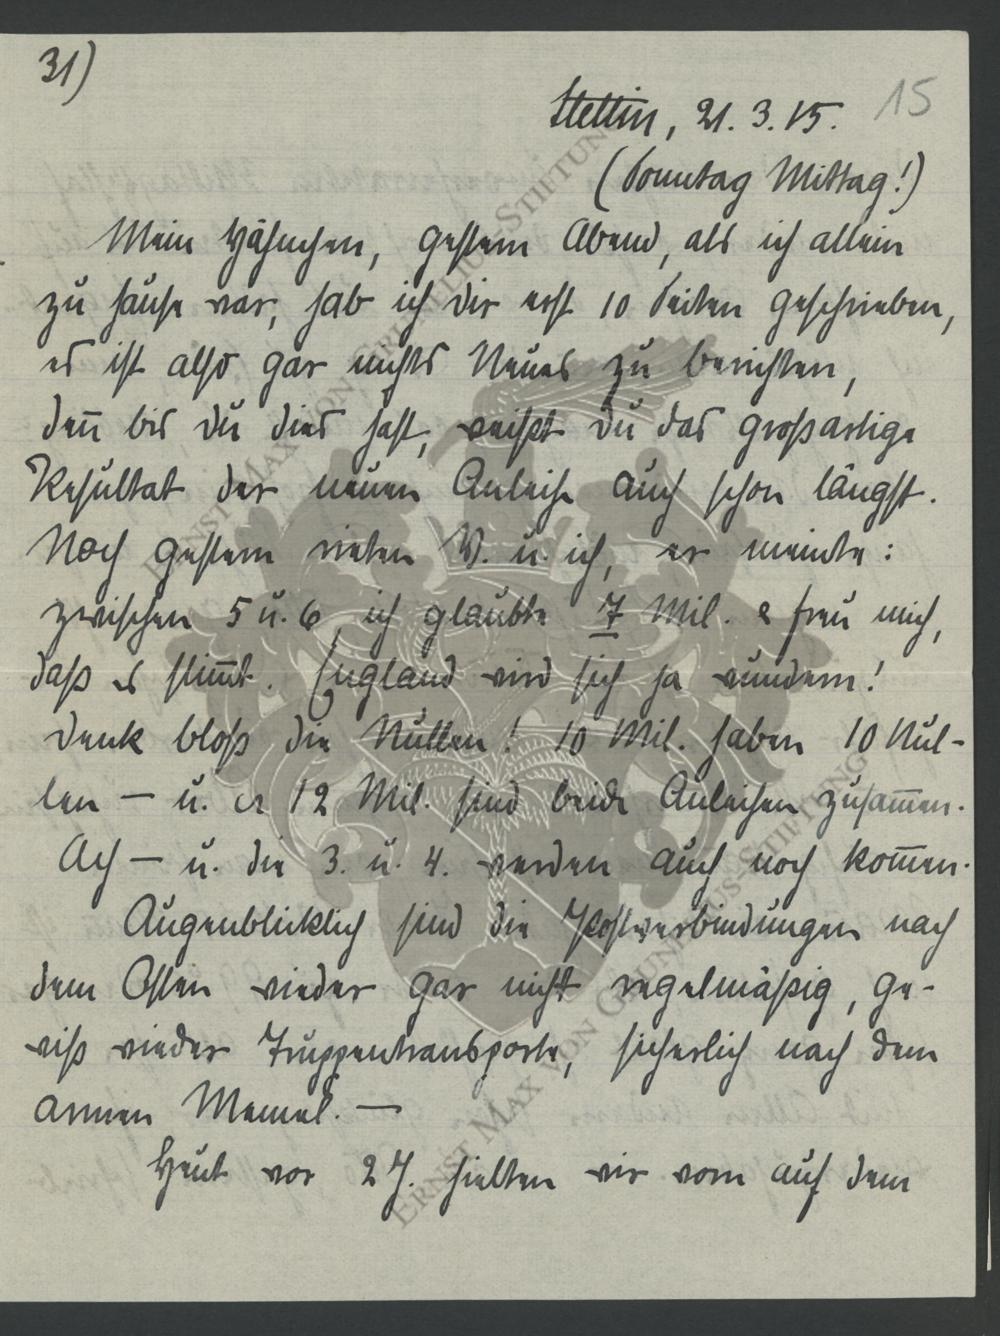 31)
15
Stettin, 21. 3. 15.
(Sonntag Mittag!)
Mein Hähnchen, gestern Abend, als ich allein
zu hause war, hab ich dir erst 10 Seiten geschrieben,
es ist also gar nichts Neues zu berichten,
den̅ bis du dies hast, weißt du das großartige
Resultat der neuen Anleihe auch schon längst.
Noch gestern rieten V. u. ich, er meinte:
zwischen 5 u. 6 ich glaubte 7 Mil. & freu mich,
daß es stim̅t. England wird sich ja wundern!
Denk bloß die Nullen! 10 Mil. haben 10 Nul-
len – u. ca 12 Mil. sind beide Anleihen zusam̅en.
Ach – u. die 3. u. 4. werden auch noch kom̅en.
Augenblicklich sind die Postverbindungen nach
dem Osten wieder gar nicht regelmäßig, ge-
wiß wieder Truppentransporte, sicherlich nach dem
armen Memel. –
Heut vor 2 J. hielten wir vorn auf dem
ERNST MAX VON GRUNELIUS-STIFTUNG
ERNST MAX VON GRUNELIUS-STIFTUNG